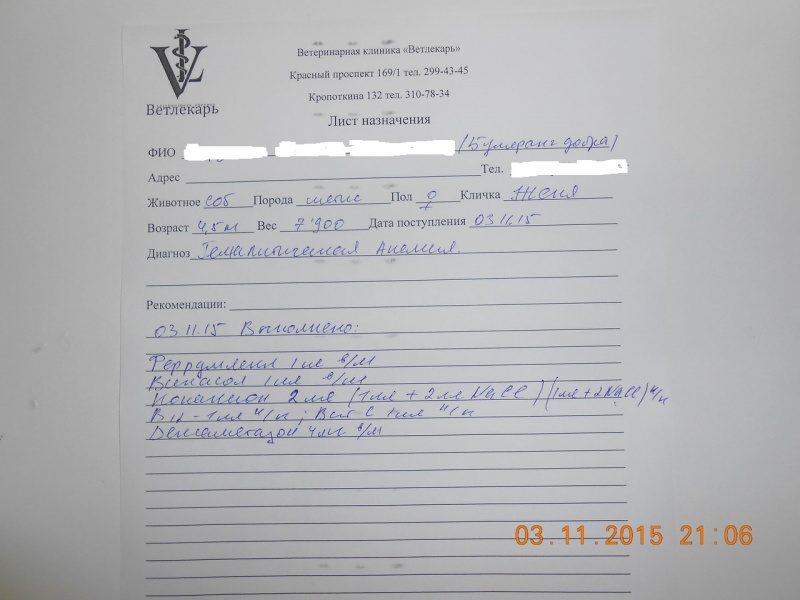 Ветеринарная клиника «Ветлекарь»
Красный проспект 169/1 тел. 299-43-45
Кропоткина 132 тел. 310-78-34
Ветлекарь
Лист назначения
ФИО (Бумеранг добра)
Адрес Тел.
Животное соб Порода метис Пол ♀ Кличка Женя
Возраст 4,5 м Вес 7'900 Дата поступления 03.11.15
Диагноз Гемолитическая Анемия.
Рекомендации:
03.11.15 Выполнено:
Феррумлект 1 мл в/м
1 мл в/м
2 мл (1 мл + 2 мл NaCl) (1 мл + 2 NaCl) п/к
B12 - 1 мл п/к; Вит C 1 мл п/к
Дексаметазон в/м
03.11.2015 21:06